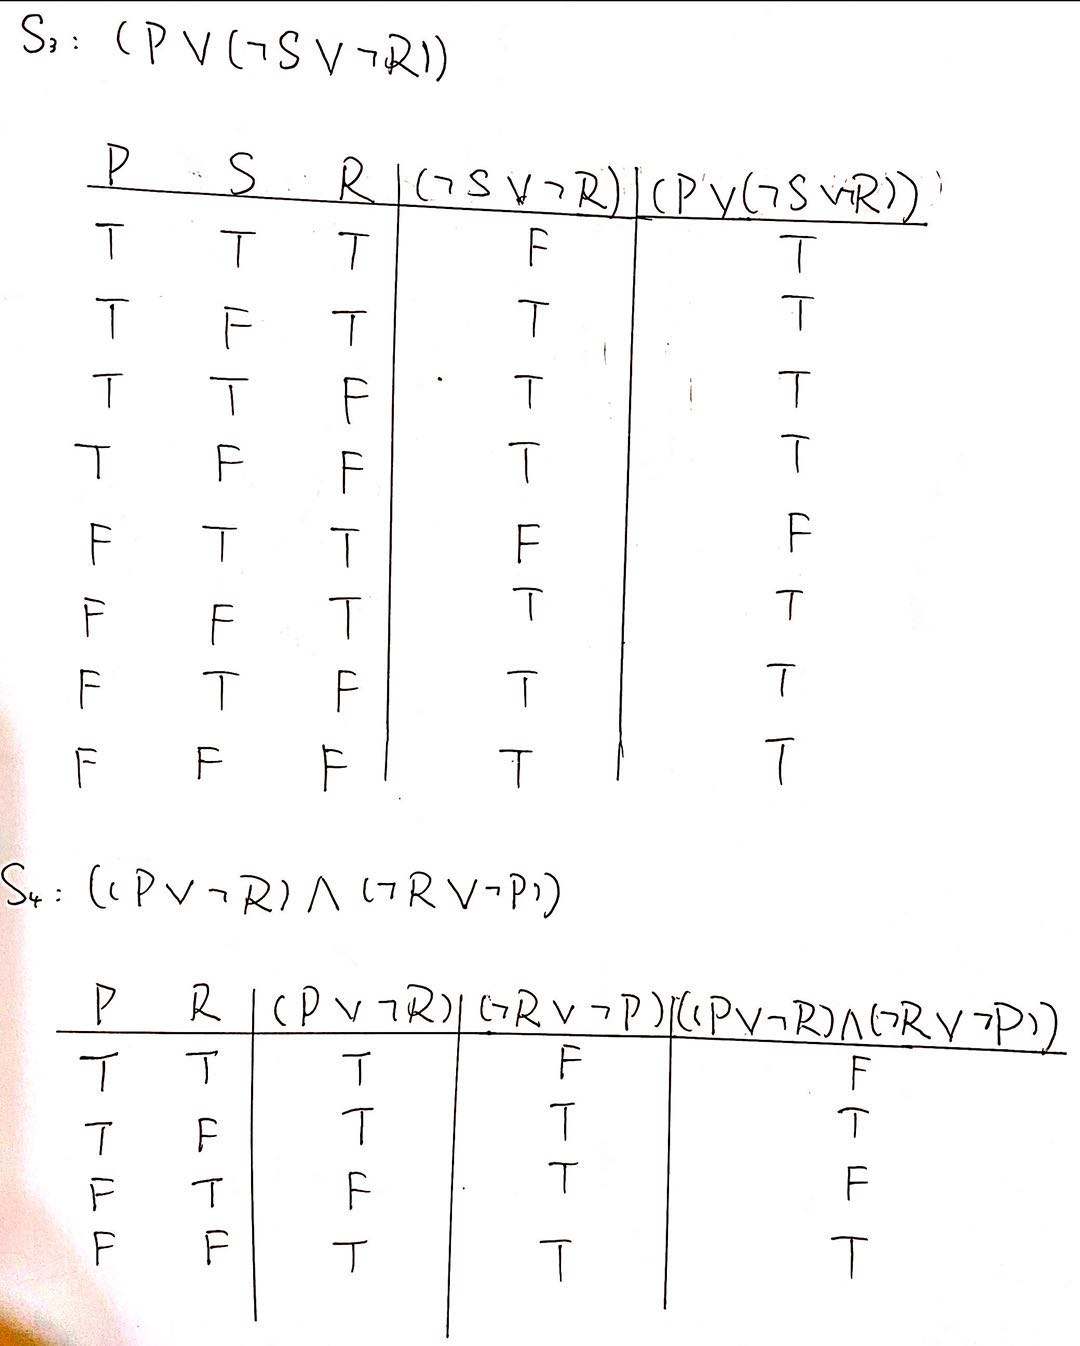 S₃: (P ∨ (¬S ∨ ¬R))
P S R (¬S ∨ ¬R) (P ∨ (¬S ∨ ¬R))
T T T F T
T F T T T
T T F T T
T F F T T
F T T F F
F F T T T
F T F T T
F F F T T
S₄: ((P ∨ ¬R) ∧ (¬R ∨ ¬P))
P R (P ∨ ¬R) (¬R ∨ ¬P) ((P ∨ ¬R) ∧ (¬R ∨ ¬P))
T T T F F
T F T T T
F T F T F
F F T T T